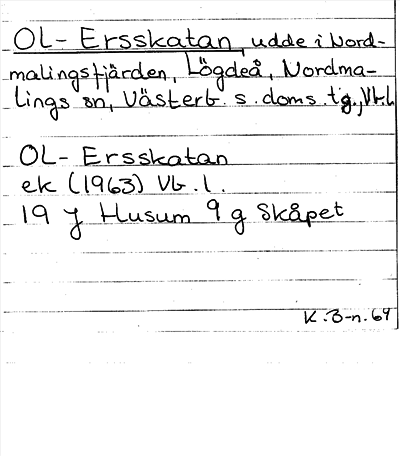 OL-Ersskatan, udde i Nord-
malingsfjärden, Lögdeå, Nordma-
lings sn, Västerb. s. doms. tg., Vb.l.
OL-Ersskatan
ek (1963) Vb. l.
19 J Husum 9 g Skåpet
K.B-n.69